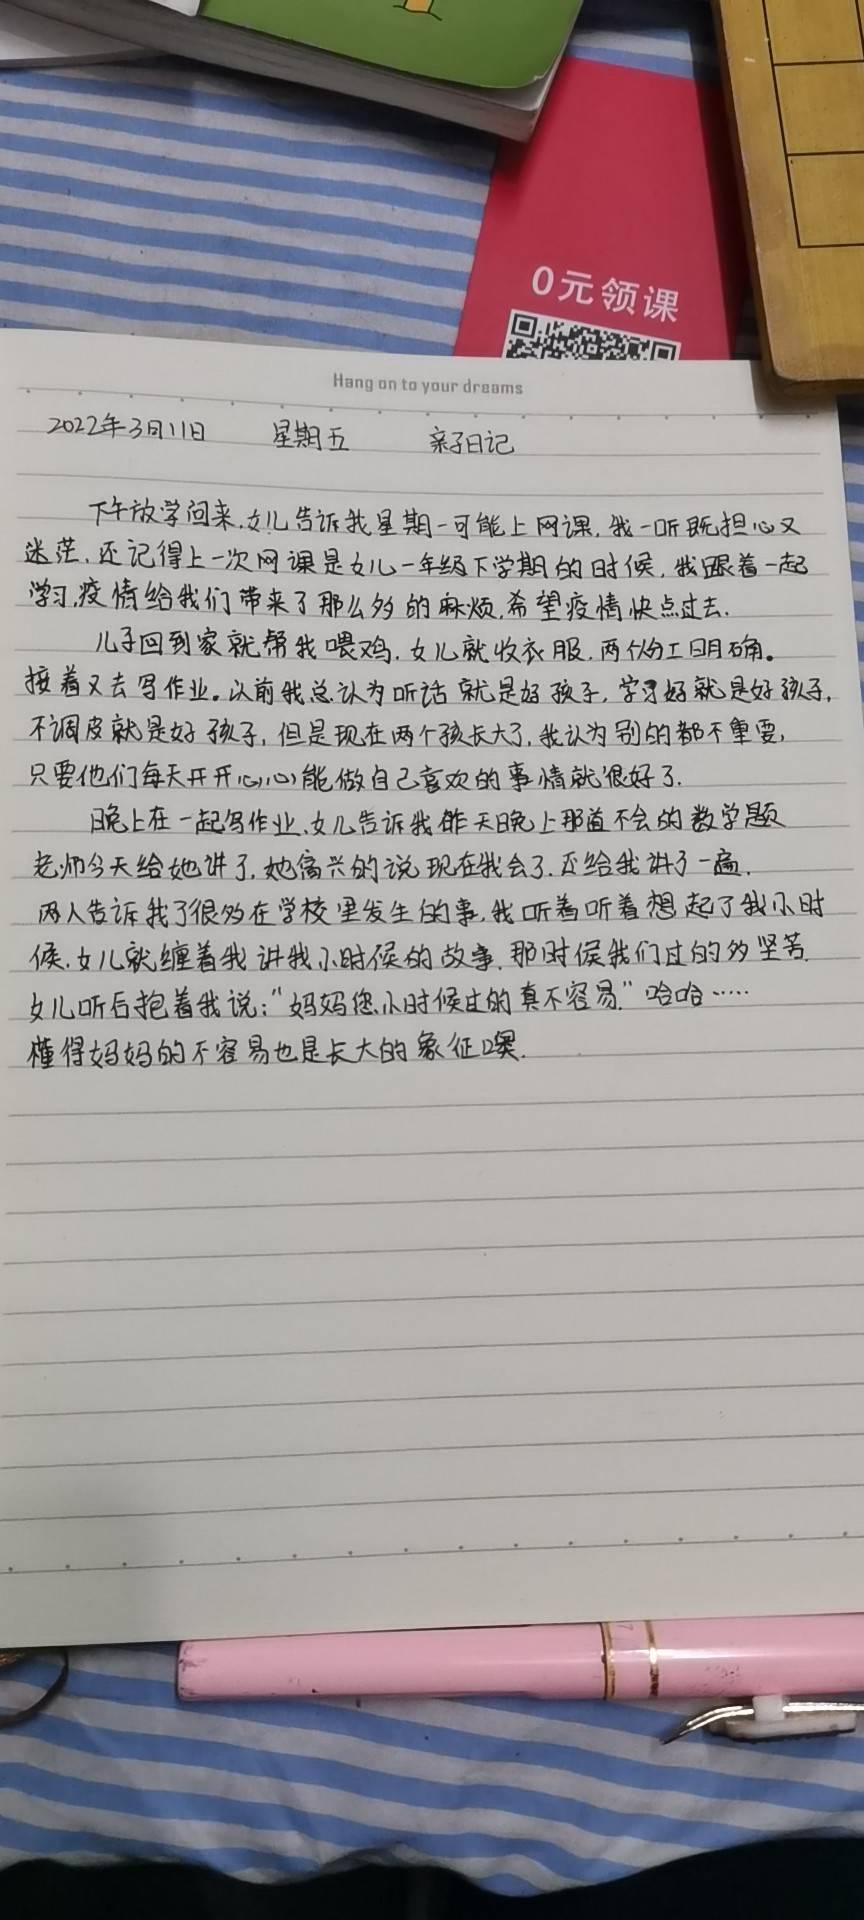 0元领课
Hang on to your dreams
2022年3月11日 星期五 亲子日记
下午放学回来,女儿告诉我星期一可能上网课,我一听既担心又
迷茫,还记得上一次网课是女儿一年级下学期的时候,我跟着一起
学习,疫情给我们带来了那么多的麻烦,希望疫情快点过去.
儿子回到家就帮我喂鸡,女儿就收衣服,两个分工明确。
接着又去写作业。以前我总认为听话就是好孩子,学习好就是好孩子,
不调皮就是好孩子,但是现在两个孩长大了,我认为别的都不重要,
只要他们每天开开心心,能做自己喜欢的事情就很好了.
晚上在一起写作业,女儿告诉我昨天晚上那道不会的数学题
老师今天给她讲了,她高兴的说现在我会了.还给我讲了一遍.
两人告诉我了很多在学校里发生的事,我听着听着想起了我小时
候,女儿就缠着我讲我小时候的故事,那时候我们过的多坚苦.
女儿听后抱着我说:“妈妈您小时候过的真不容易.”哈哈……
懂得妈妈的不容易也是长大的象征噢.